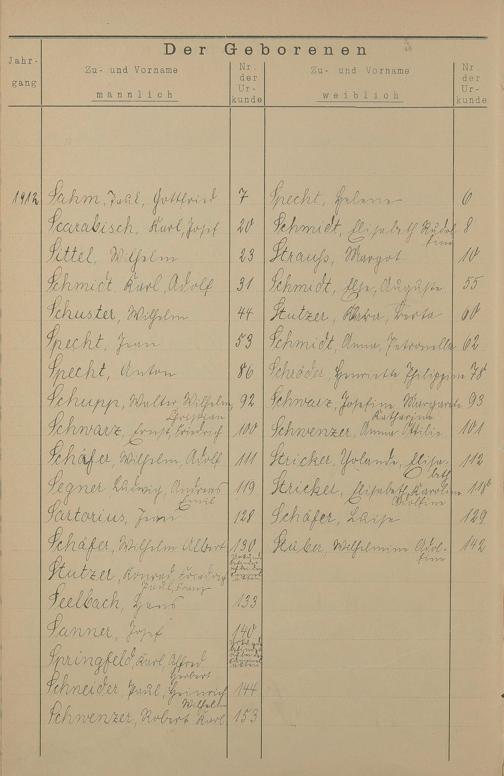 Der Geborenen
Jahr-
gang
Zu- und Vorname
mannlich
Nr.
der
Ur-
kunde
Zu- und Vorname
weiblich
Nr
der
Ur-
kunde
1912 Sahm, Paul, Gottfried 7 Specht, Helene 6
Scarabisch, Karl, Josef 20 Schmidt, Elisabeth Rudol-
fine 8
Sittel, Wilhelm 23 Strauss, Margot 10
Schmidt, Karl, Adolf 31 Schmidt, Else, Auguste 55
Schuster, Wilhelm 44 Stutzer, Berta 60
Specht, Jean 53 Schmidt, Anna, Petronella 62
Specht, Anton 86 Schröder, Henriette Philippine 78
Schupp, Walter Wilhelm, 92 Schwarz, Josefine Margarete 93
Christian Katharina
Schwarz, Ernst Friedrich 100 Schwenzer, Anna Ottilie 101
Schäfer, Wilhelm, Adolf 111 Stricker, Yolanda, Elisa- 112
beth
Segner Ludwig, Andreas 119 Stricker, Elisabeth, Karoline 118
Emil
Sartorius, Jean 128 Schäfer, Luise 129
Schäfer, Wilhelm Albert 130 Stuber, Wilhelmine Adol- 142
fine
Stutzer, Konrad, Friedrich
Paul, Franz
Seelbach, Hans 133
Sanner, Josef 140
Springfeld, Karl, Alfred
Herbert
Schneider, Paul, Heinrich 144
Wilhelm
Schwenzer, Robert Karl 153